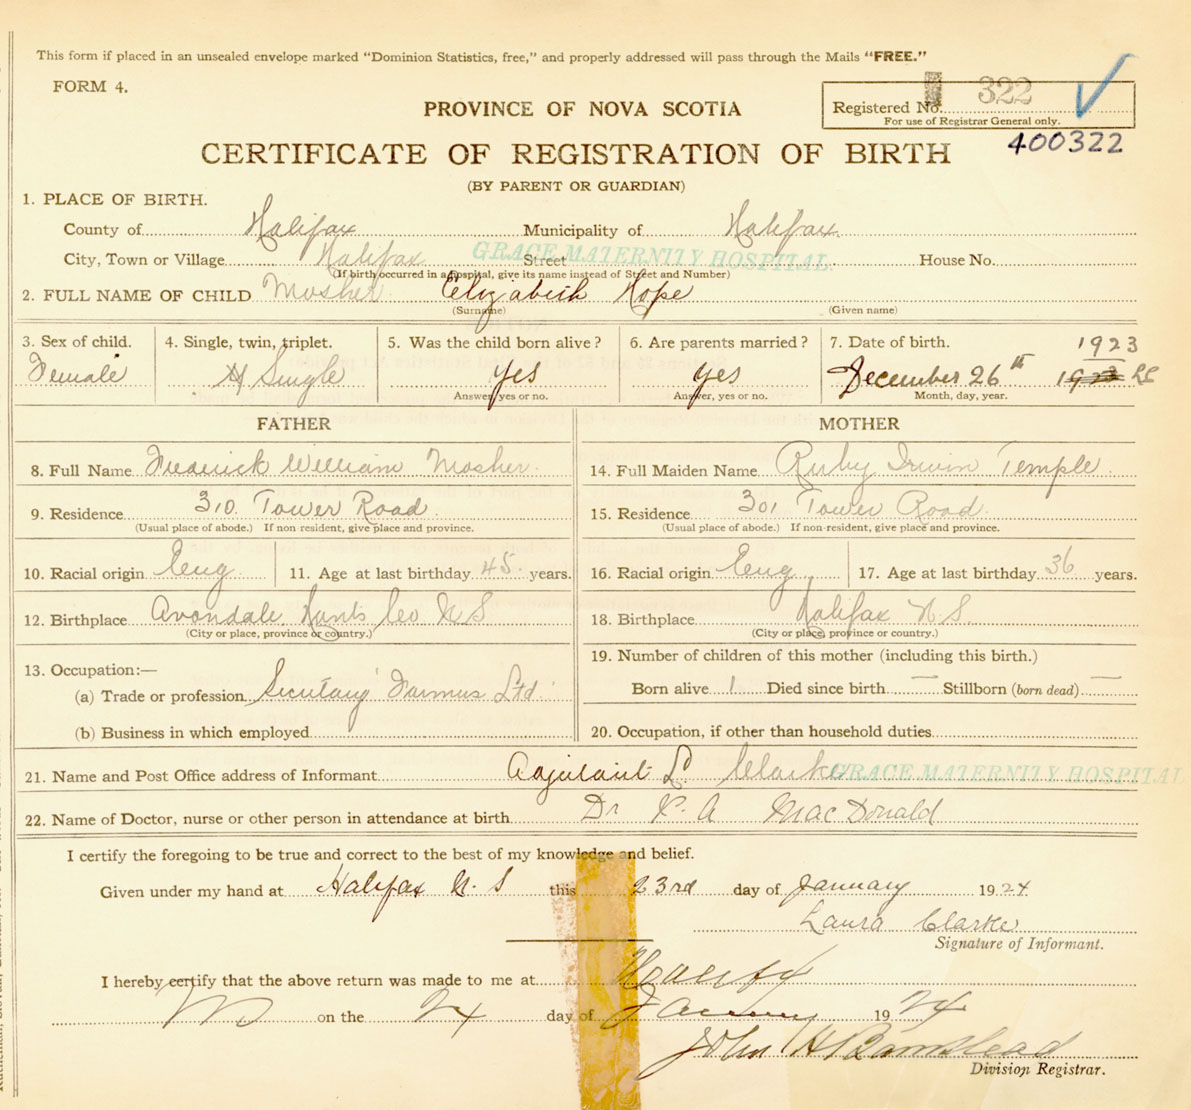 This form if placed in an unsealed envelope marked "Dominion Statistics, free," and properly addressed will pass through the Mails "FREE."
FORM 4.
Registered No. 322
For use of Registrar General only.
400322
PROVINCE OF NOVA SCOTIA
CERTIFICATE OF REGISTRATION OF BIRTH
(BY PARENT OR GUARDIAN)
1. PLACE OF BIRTH.
County of Halifax Municipality of Halifax
City, Town or Village Halifax Street GRACE MATERNITY HOSPITAL House No.
(If birth occurred in a hospital, give its name instead of Street and Number)
2. FULL NAME OF CHILD Mosher Elizabeth Hope
(Surname) (Given name)
3. Sex of child. 4. Single, twin, triplet. 5. Was the child born alive? 6. Are parents married? 7. Date of birth. 1923
Female Single Yes yes December 26th
Answer, yes or no. Answer, yes or no. Month, day, year.
FATHER MOTHER
8. Full Name Fredrick William Mosher 14. Full Maiden Name Ruby Irwin Temple
9. Residence 310 Tower Road 15. Residence 301 Tower Road
(Usual place of abode.) If non-resident, give place and province. (Usual place of abode.) If non-resident, give place and province.
10. Racial origin Eng. 11. Age at last birthday 45 years. 16. Racial origin Eng. 17. Age at last birthday 36 years.
12. Birthplace Avondale, Hants Co N S 18. Birthplace Halifax N S.
(City or place, province or country.) (City or place, province or country.)
13. Occupation:— 19. Number of children of this mother (including this birth.)
(a) Trade or profession Secutary Farmers Ltd. Born alive 1 Died since birth — Stillborn (born dead) —
(b) Business in which employed 20. Occupation, if other than household duties
21. Name and Post Office address of Informant Adjutant L. Clarke GRACE MATERNITY HOSPITAL
22. Name of Doctor, nurse or other person in attendance at birth Dr K. A MacDonald
I certify the foregoing to be true and correct to the best of my knowledge and belief.
Given under my hand at Halifax N. S this 23rd day of January 1924
Laura Clarke
Signature of Informant.
I hereby certify that the above return was made to me at
on the 24 day of January 1924
John H Barnstead
Division Registrar.